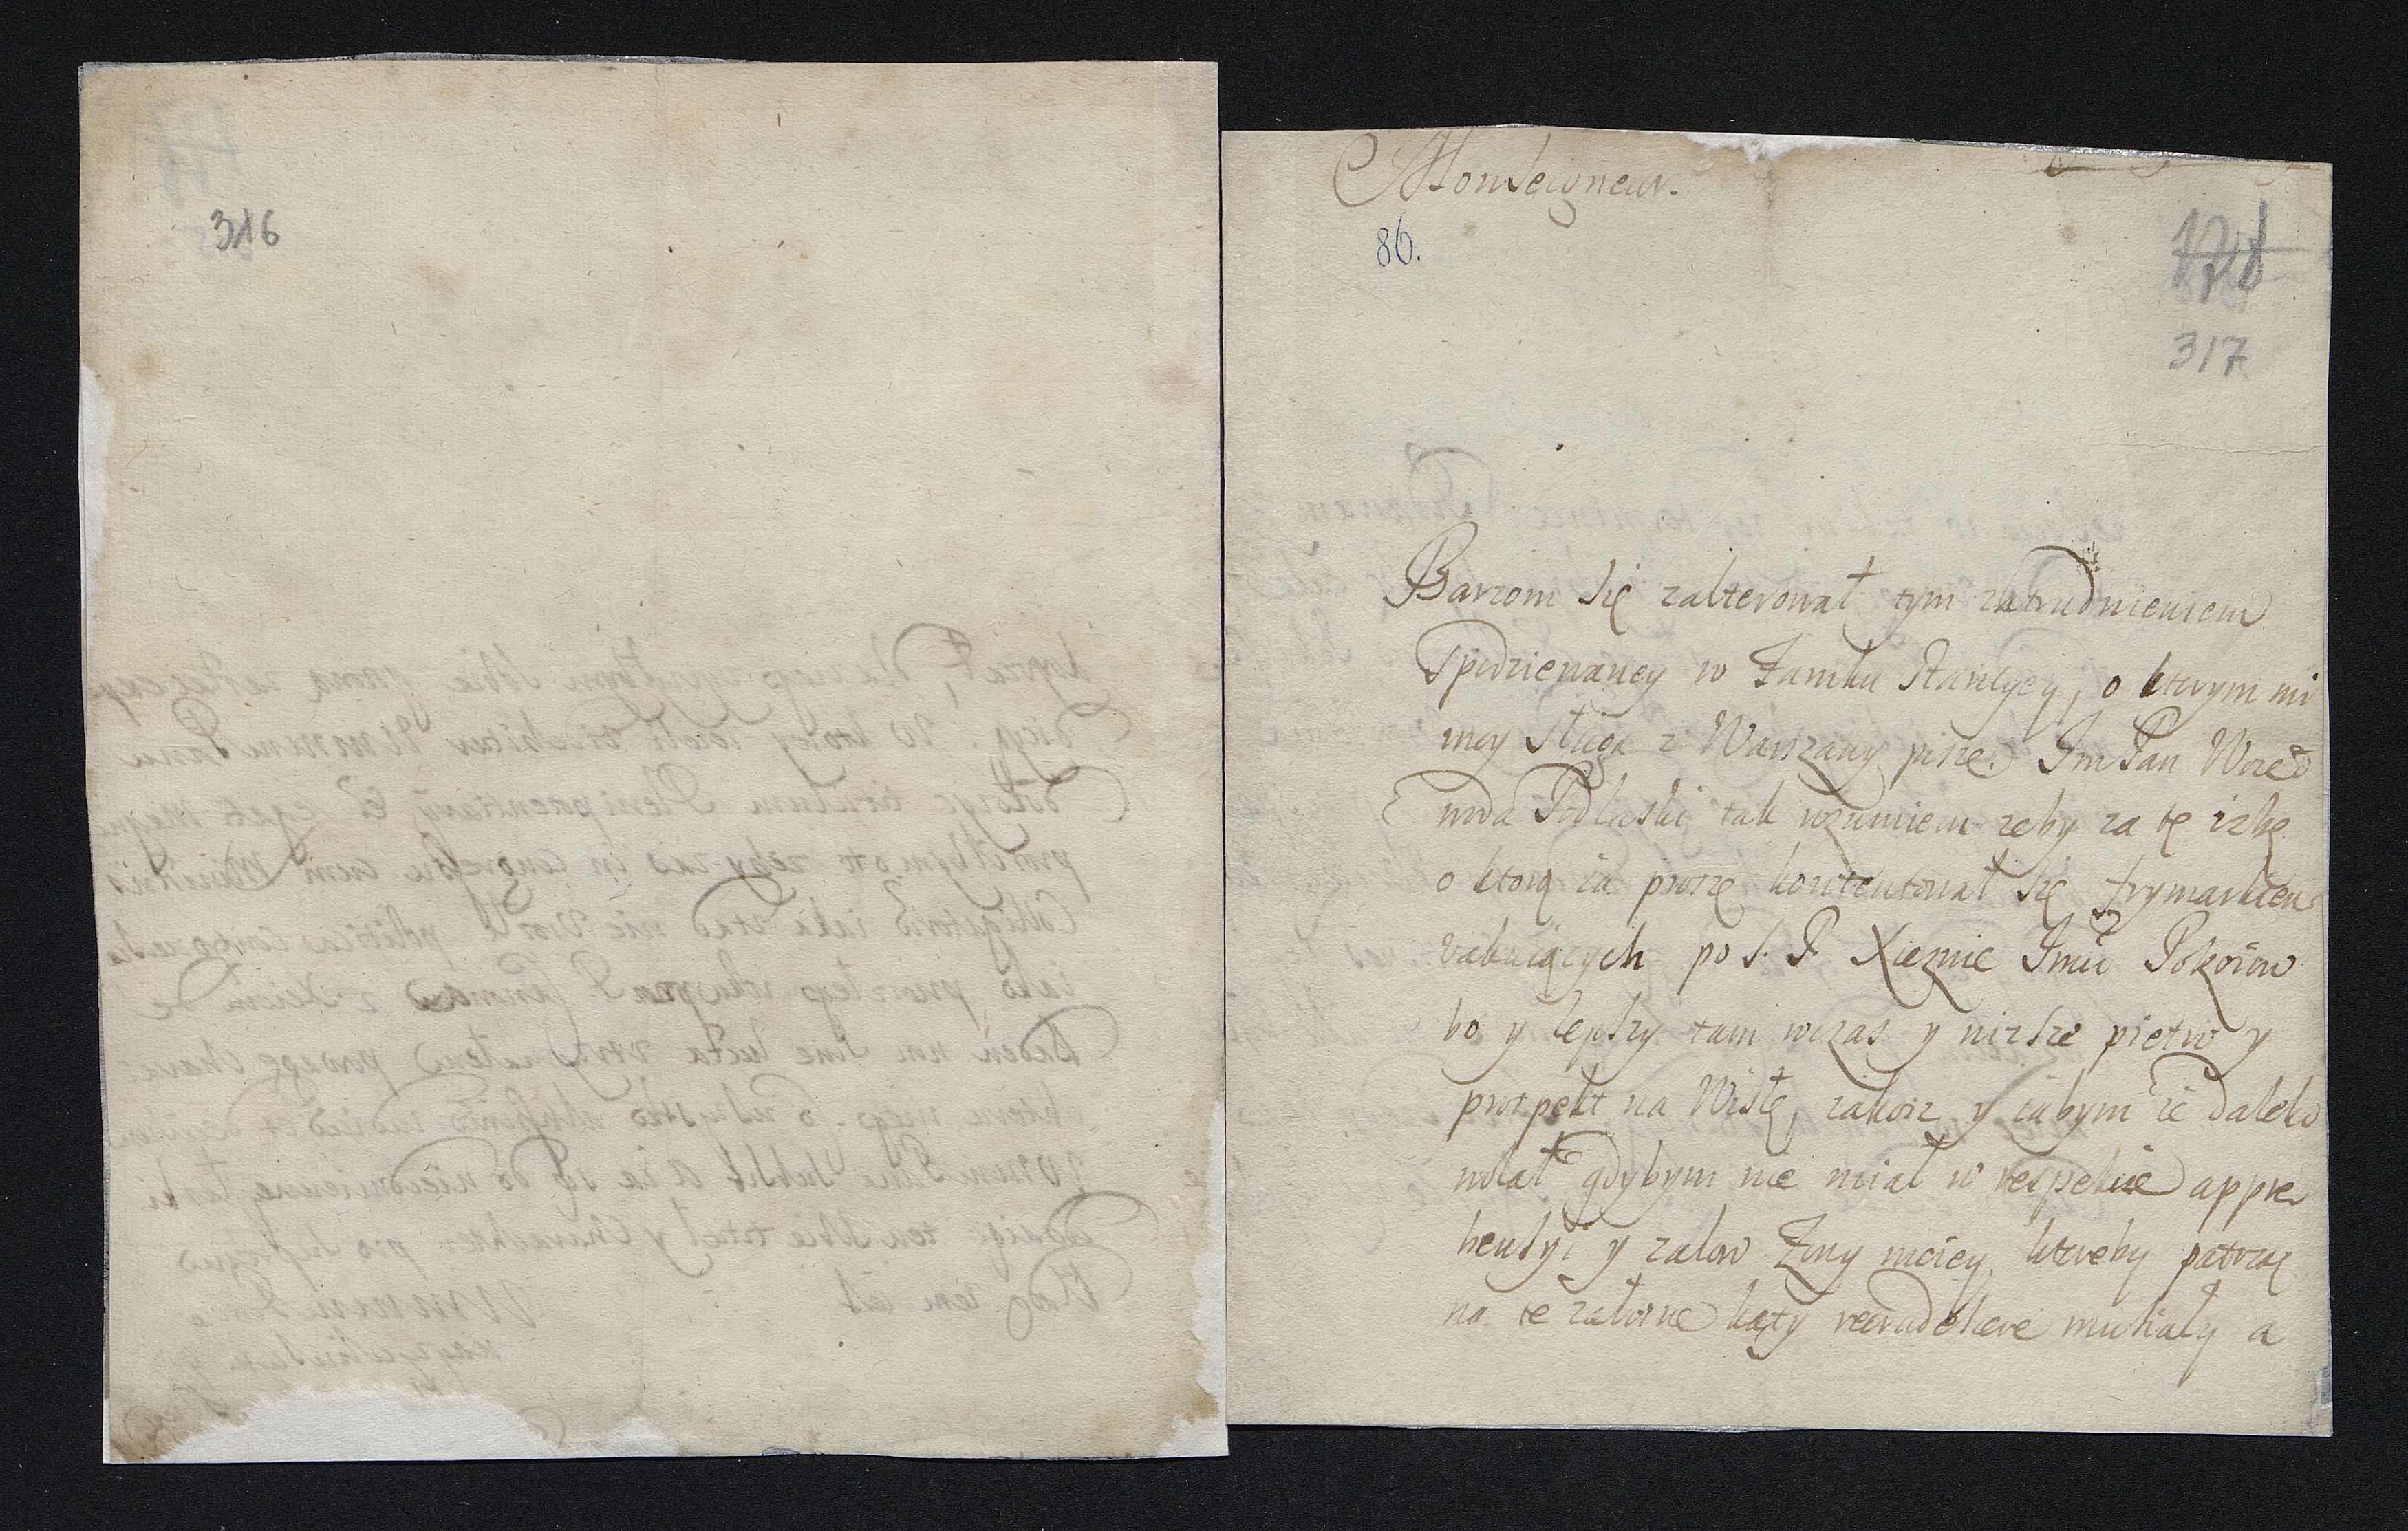 316
Monseigneur.
86.
317
Barzom się zalterował tym zatrudnieniem
Spodziewaney w Zamku Stancyey, o ktorym mi
moy Sługa z Warszawy pisze. Im Pan Woie
woda Podlaski tak rozumiem zeby za tę izbę
o ktorą ia proszę kontentował się frymarkiem
vakuiących po S. P. Xięznie Imći Pokoiow
bo y lepszy tam wczas y nizsze piętro y
prospekt na Wisłę, zakoiz y iabym ie daleko
wolał gdybym nie miał w respekcie appre
hensyi y zalow Zony moiey, ktoreby patrząc
na te załosne kąty recrudescere musiały a